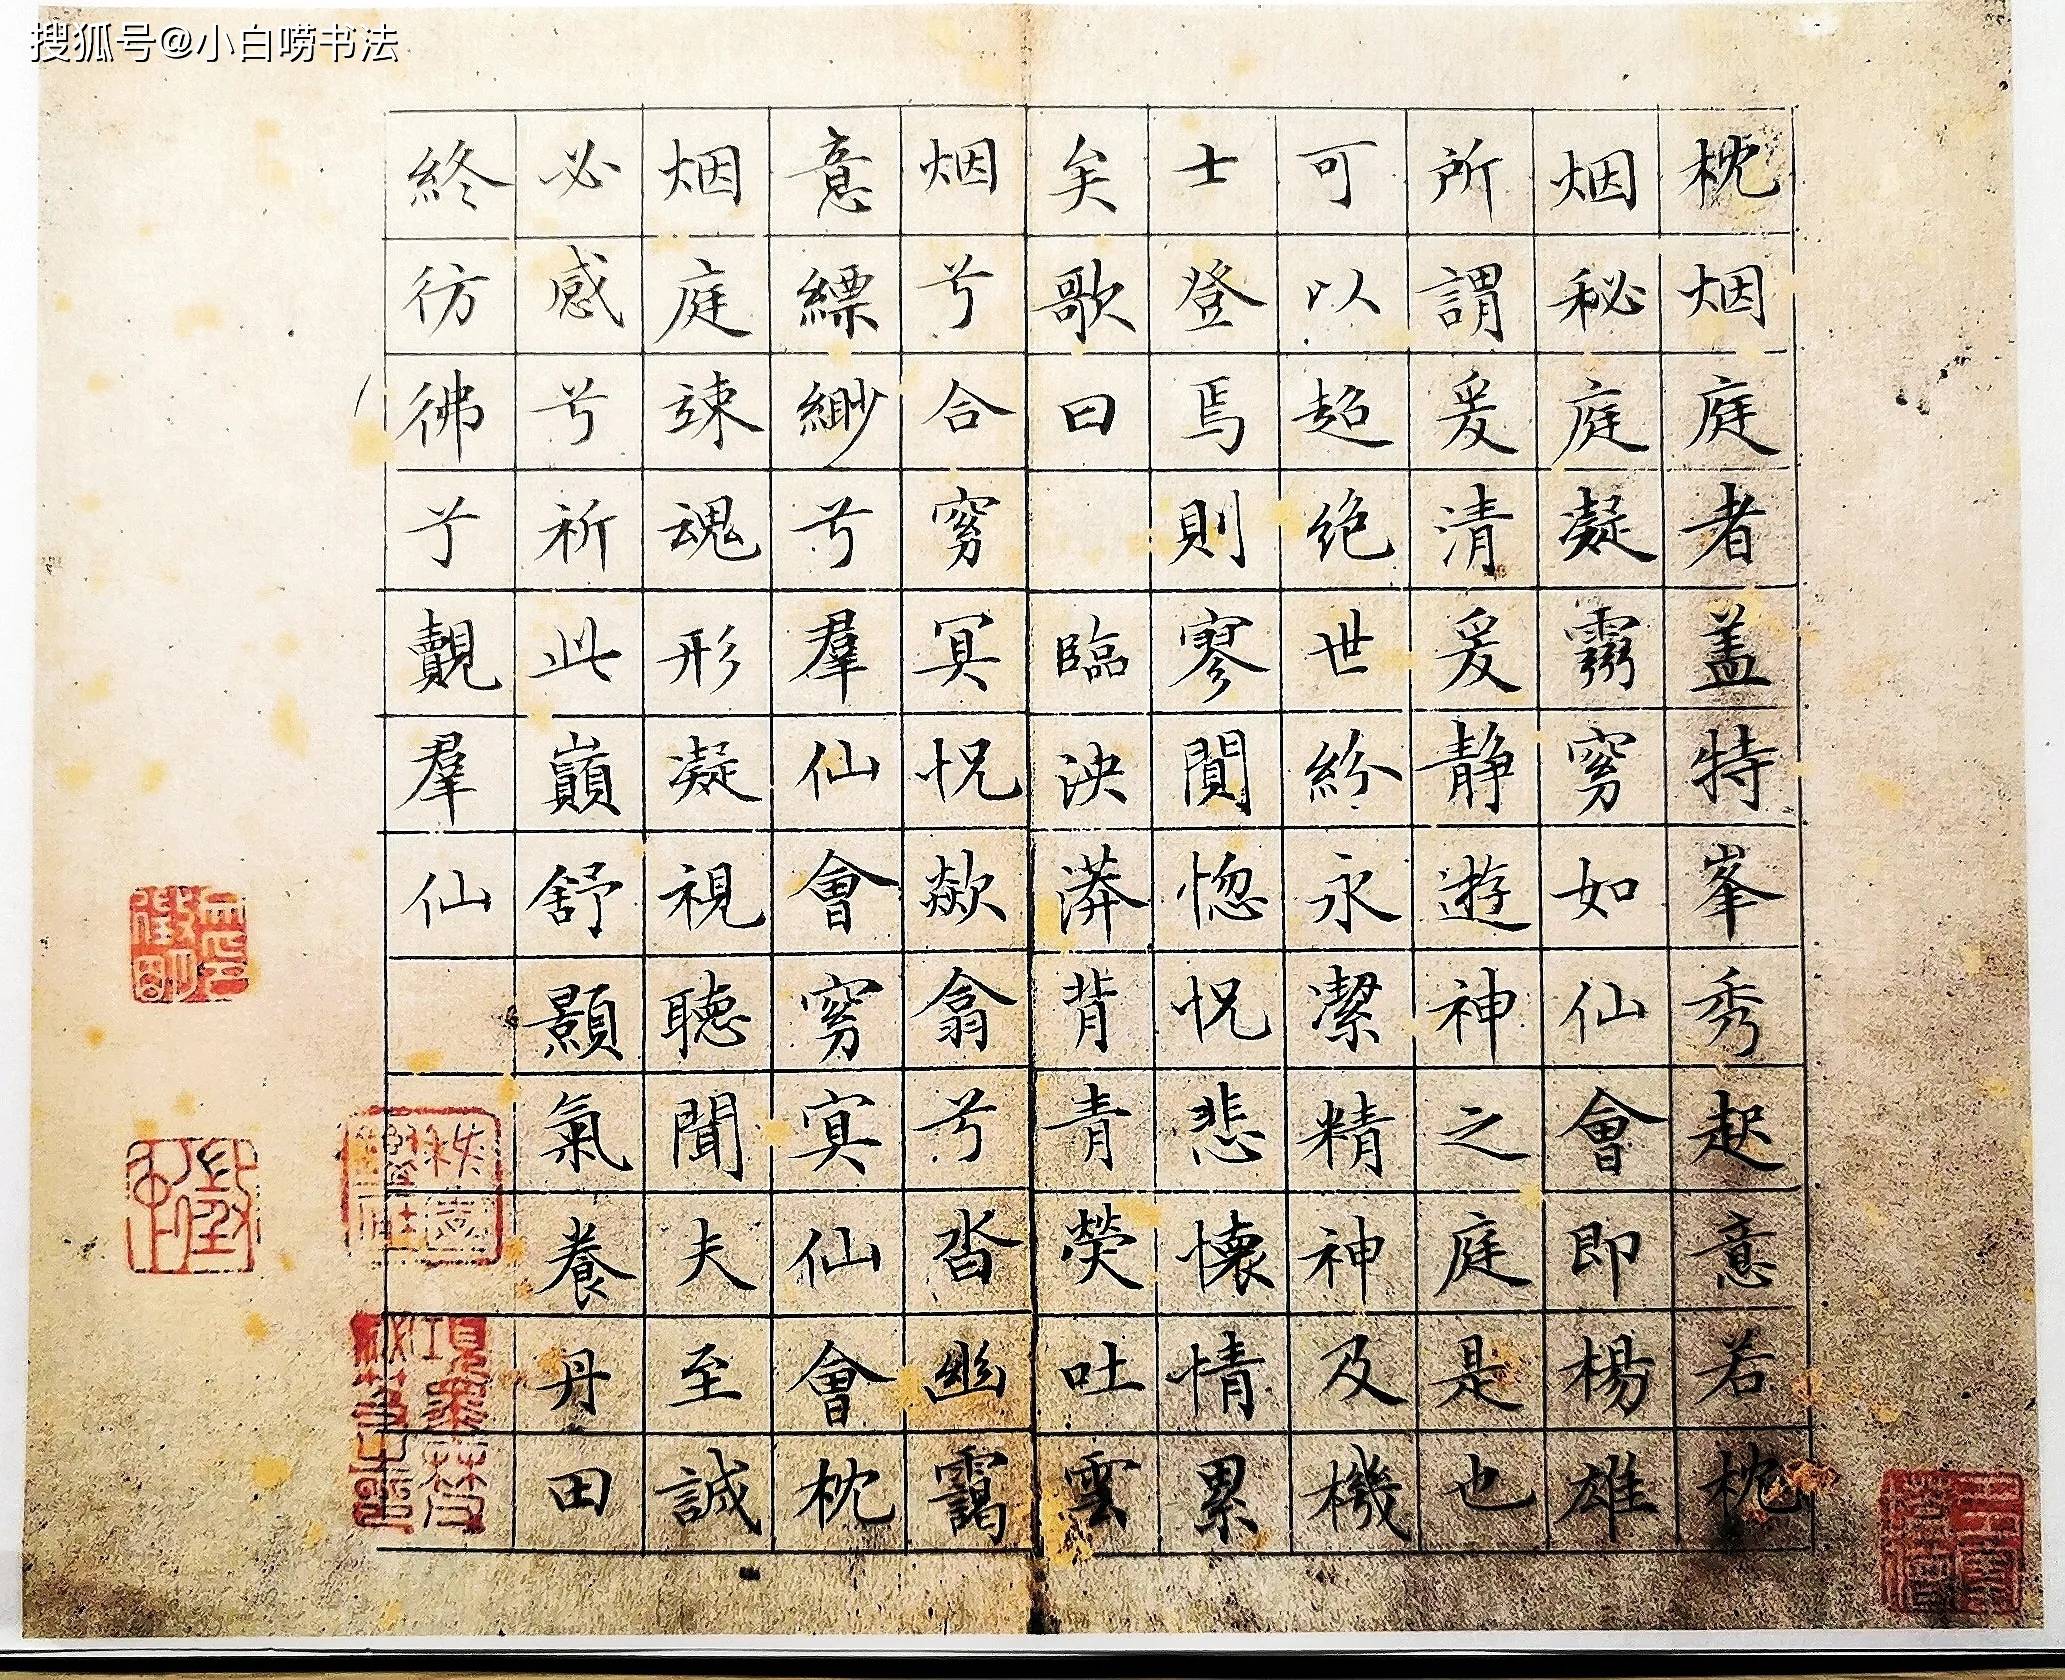 搜狐号@小白唠书法
枕烟庭者盖特峯秀起意若枕
烟秘庭凝霧窈如仙會即楊雄
所謂爰清爰静遊神之庭是也
可以超绝世紛永潔精神及機
士登焉則寥闃惚怳悲懷情累
矣歌曰 臨泱漭背青熒吐雲
烟兮合窈冥怳欻翕兮沓幽靄
意縹緲兮羣仙會窈冥仙會枕
烟庭竦魂形凝視聽聞夫至誠
必感兮祈此巔舒顥氣養丹田
終彷彿兮覿羣仙